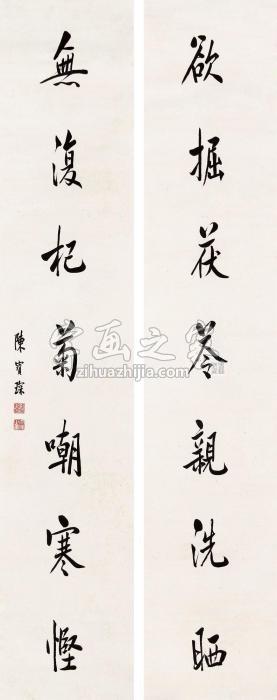 欲掘茯苓親洗晒
無復杞菊嘲寒慳
陳寶琛
字画之家
zihuazhijia.com